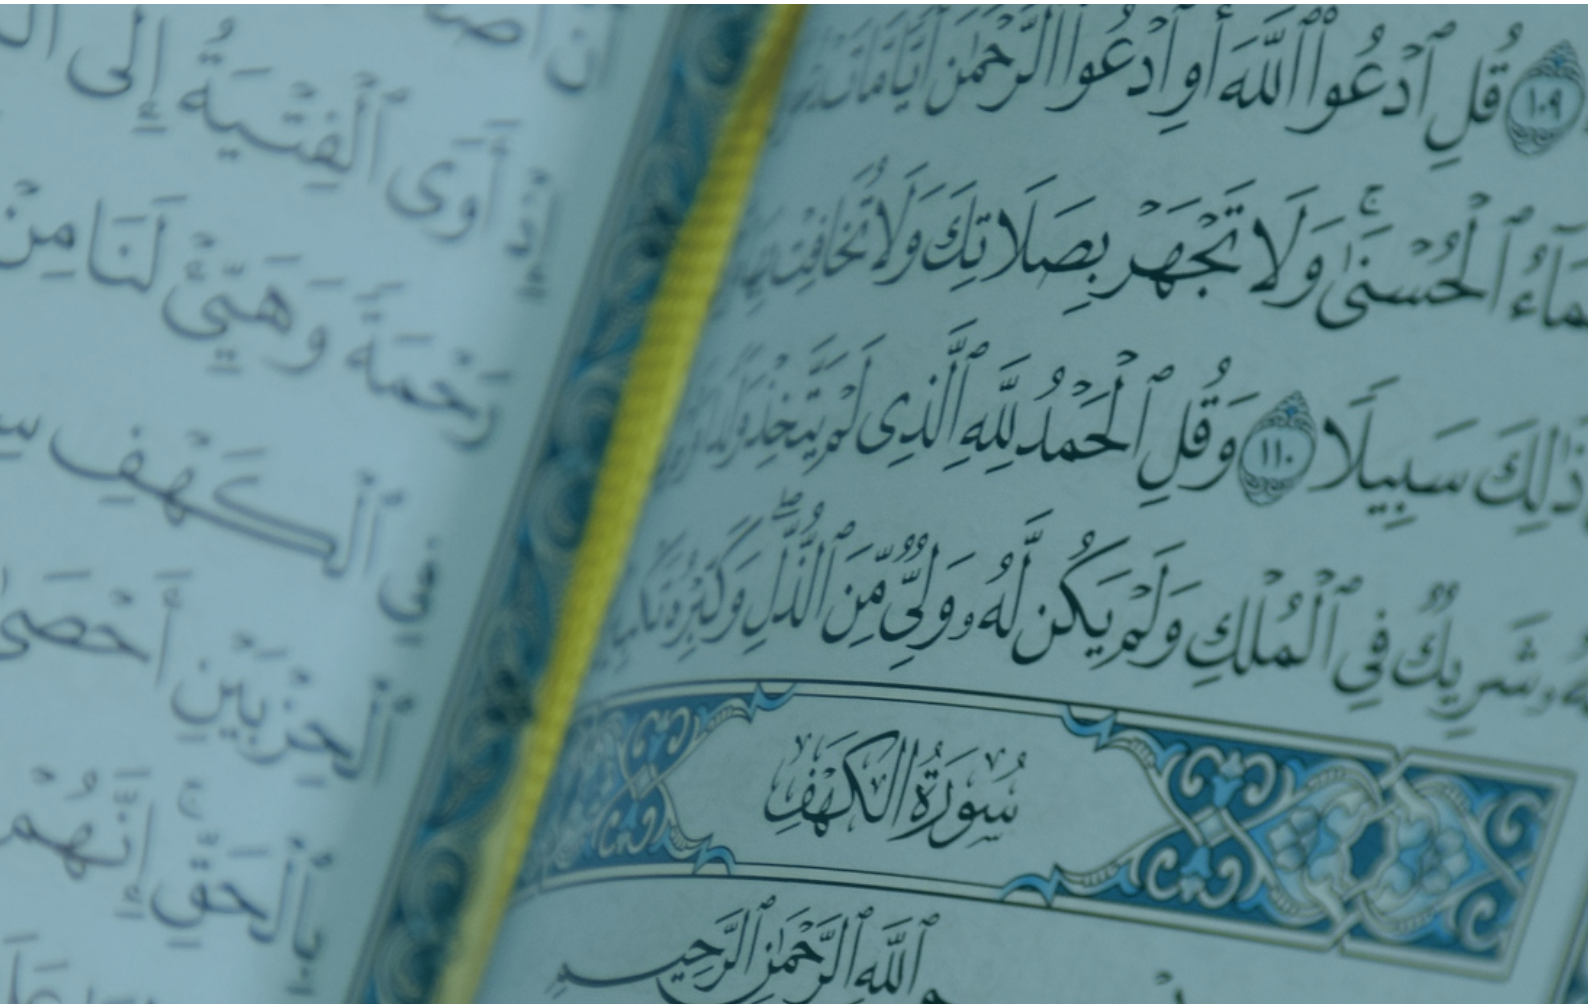 ١٠٩ قُلِ ٱدْعُوا۟ ٱللَّهَ أَوِ ٱدْعُوا۟ ٱلرَّحْمَٰنَ أَيًّا مَّا
ٱلْحُسْنَىٰ ۚ وَلَا تَجْهَرْ بِصَلَاتِكَ وَلَا تُخَافِتْ بِهَا
ذَٰلِكَ سَبِيلًا ١١٠ وَقُلِ ٱلْحَمْدُ لِلَّهِ ٱلَّذِى لَمْ يَتَّخِذْ وَلَدًا
شَرِيكٌ فِى ٱلْمُلْكِ وَلَمْ يَكُن لَّهُۥ وَلِىٌّ مِّنَ ٱلذُّلِّ ۖ وَكَبِّرْهُ
سُورَةُ الكَهْفِ
ٱللَّهِ ٱلرَّحْمَٰنِ ٱلرَّحِيمِ
أَوَى ٱلْفِتْيَةُ إِلَى
رَحْمَةً وَهَيِّئْ لَنَا مِنْ
ٱلْكَهْفِ
ٱلْحِزْبَيْنِ أَحْصَىٰ
بِٱلْحَقِّ ۚ إِنَّهُمْ